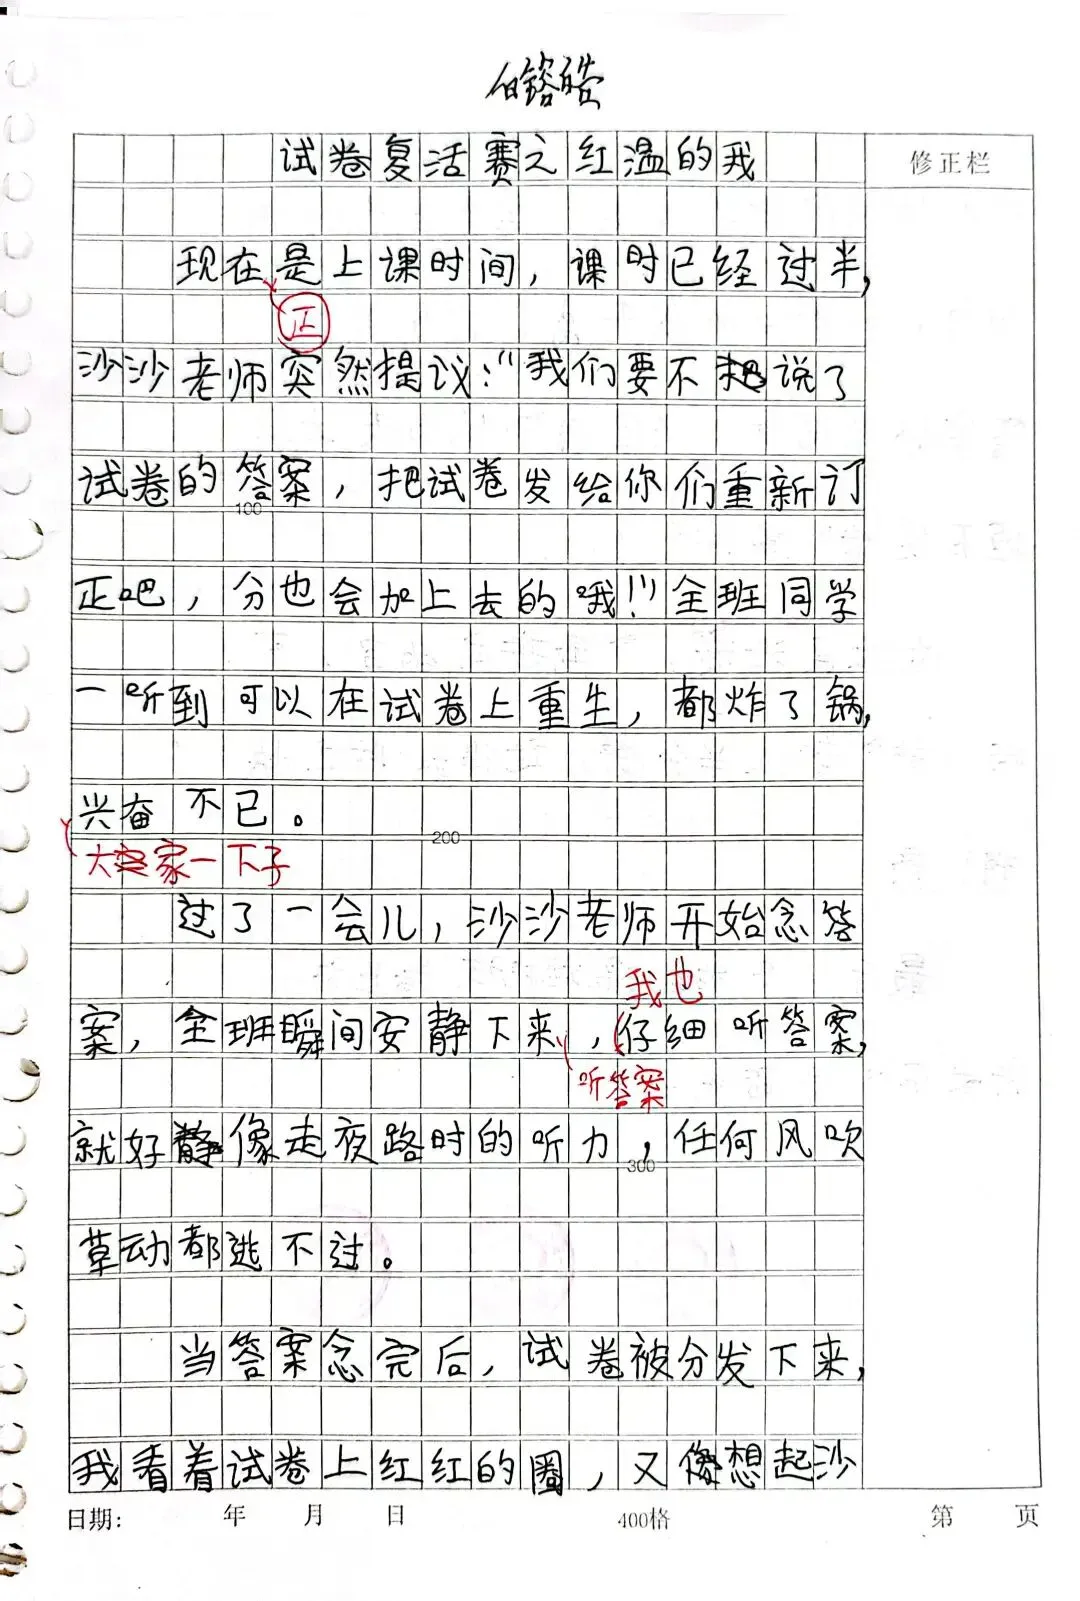 白容皓
试卷复活赛之红温的我
修正栏
现在是上课时间，课时已经过半，
正
沙沙老师突然提议：“我们要不把说了
试卷的答案，把试卷发给你们重新订
100
正吧，分也会加上去的哦！”全班同学
一听到可以在试卷上重生，都炸了锅，
兴奋不已。
200
大家一下子
过了一会儿，沙沙老师开始念答
我也
案，全班瞬间安静下来，仔细听答案，
听答案
就好像走夜路时的听力，任何风吹
300
草动都逃不过。
当答案念完后，试卷被分发下来，
我看着试卷上红红的圈，又想起沙
日期： 年 月 日 400格 第 页